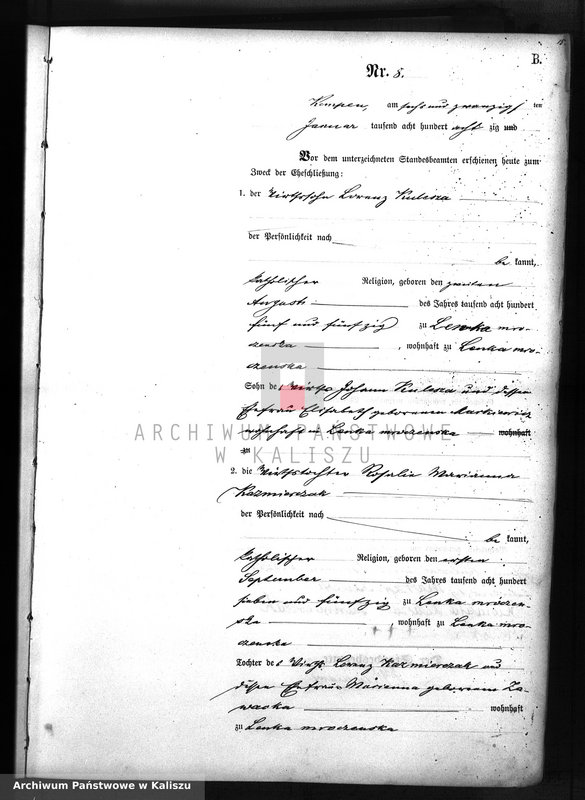 15
B.
Nr. 8.
Kempen, am sechs und zwanzigsten
Januar tausend acht hundert acht zig und
Vor dem unterzeichneten Standesbeamten erschienen heute zum
Zweck der Eheschließung:
1. der Wirthssohn Lorenz Kulesza
der Persönlichkeit nach
be kannt,
katholischer Religion, geboren den zweiten
August des Jahres tausend acht hundert
fünf und fünfzig zu Lenka mro-
czenska, wohnhaft zu Lenka mro-
czenska
Sohn des Wirths Johann Kulesza und dessen
Ehefrau Elisabeth geborenen Markiewicz
wohnhaft in Lenka mroczenska wohnhaft
zu
ARCHIWUM PAŃSTWOWE
W KALISZU
2. die Wirthstochter Rosalie Marianna
Kazmierczak
der Persönlichkeit nach
be kannt,
katholischer Religion, geboren den ersten
September des Jahres tausend acht hundert
sieben und fünfzig zu Lenka mroczen-
ska, wohnhaft zu Lenka mro-
czenska
Tochter des Wirths Lorenz Kazmierczak und
dessen Ehefrau Marianna geborenen Za-
wohnhaft
zu Lenka mroczenska
Archiwum Państwowe w Kaliszu